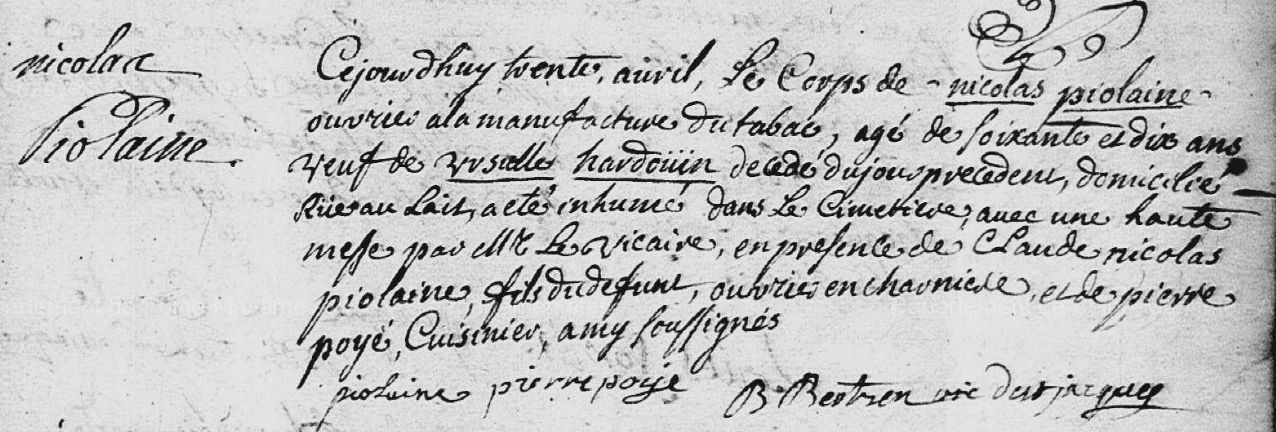 nicolas
Piolaine.
Cejourdhuy trente, avril, Le Corps de nicolas piolaine
ouvrier ala manufacture du tabac, agé de soixante et dix ans
veuf de ursulle hardoüin decedé du jour precedent, domicilié
Rüe au Lait, a eté inhumé dans Le Cimetiere, avec une haute
messe par Mr Le vicaire, en presence de Claude nicolas
piolaine, fils du defunt, ouvrier en charniere, et de pierre
poyé, Cuisinier, amy soussignés
piolaine pierre poyé B. Bertzen vic de st jacques